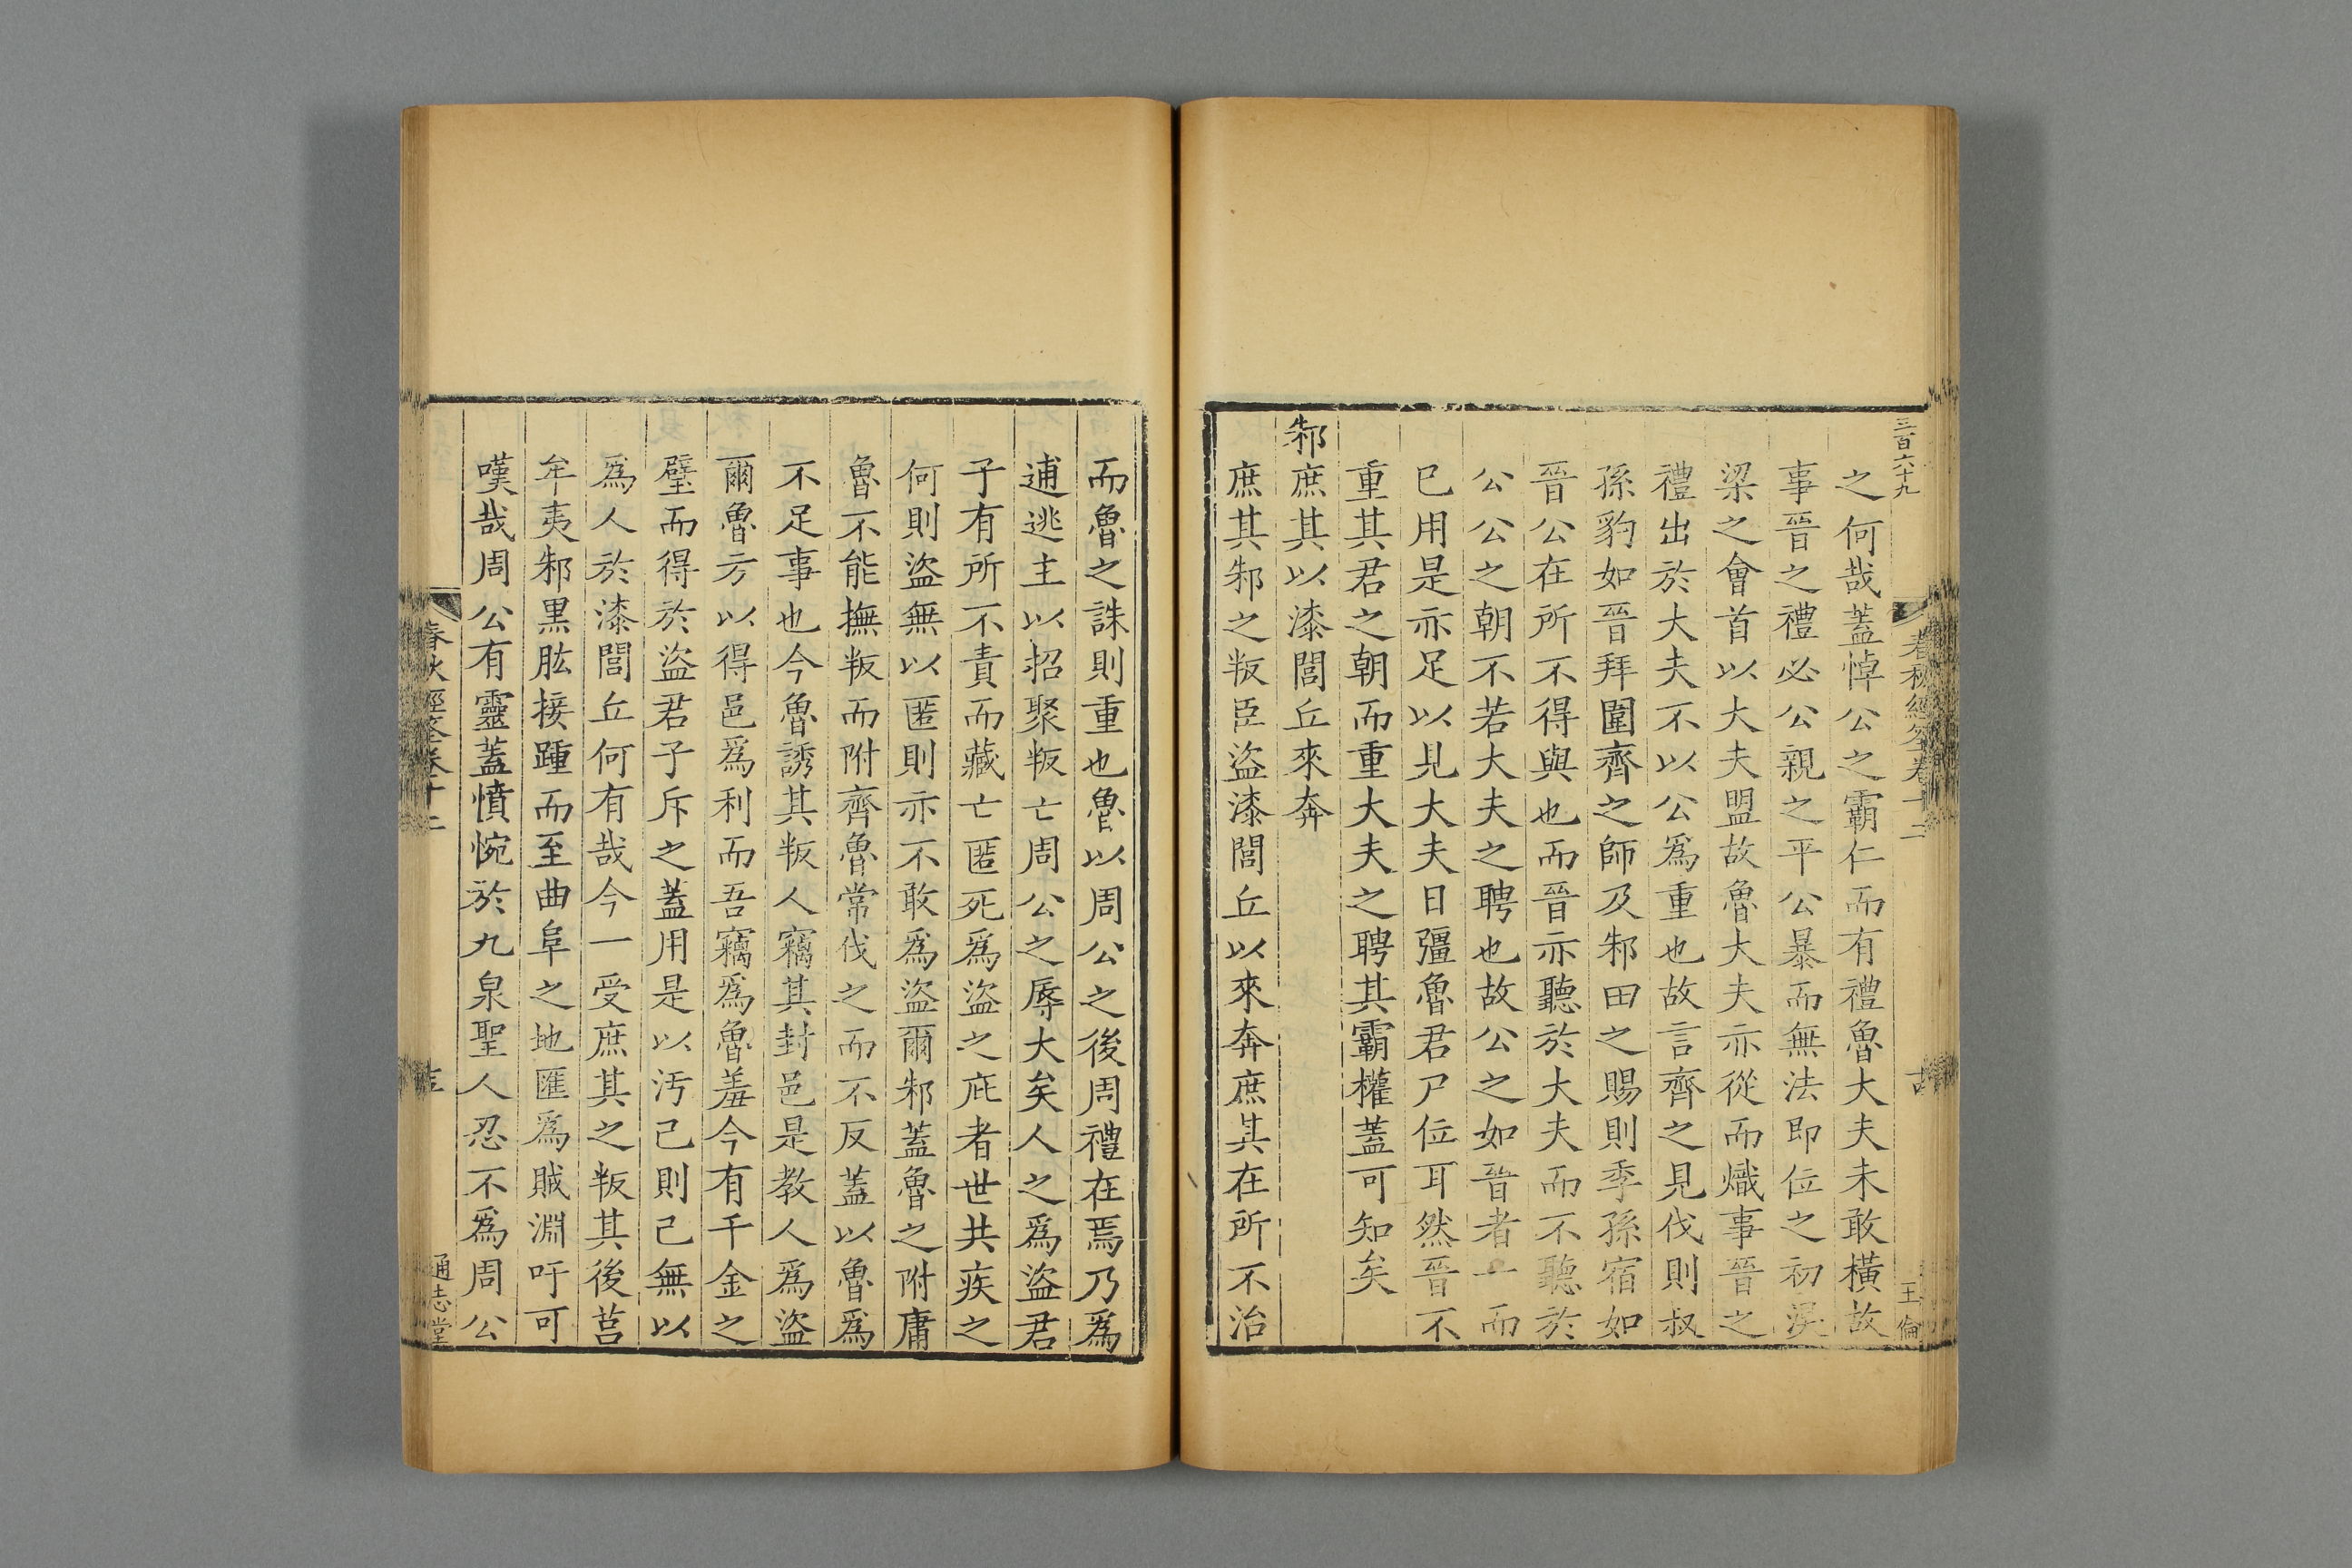 三百六十九
春秋經筌卷十二
王倫
之何哉蓋悼公之霸仁而有禮魯大夫未敢橫故
事晉之禮必公親之平公暴而無法即位之初湨
梁之會首以大夫盟故魯大夫亦從而熾事晉之
禮出於大夫不以公爲重也故言齊之見伐則叔
孫豹如晉拜圍齊之師及邾田之賜則季孫宿如
晉公在所不得與也而晉亦聽於大夫而不聽於
公公之朝不若大夫之聘也故公之如晉者一而
已用是亦足以見大夫日彊魯君尸位耳然晉不
重其君之朝而重大夫之聘其霸權蓋可知矣
邾庶其以漆閭丘來奔
庶其邾之叛臣盜漆閭丘以來奔庶其在所不治
而魯之誅則重也魯以周公之後周禮在焉乃爲
逋逃主以招聚叛亡周公之辱大矣人之爲盜君
子有所不責而藏亡匿死爲盜之庇者世共疾之
何則盜無以匿則亦不敢爲盜爾邾蓋魯之附庸
魯不能撫叛而附齊魯常伐之而不反蓋以魯爲
不足事也今魯誘其叛人竊其封邑是教人爲盜
爾魯方以得邑爲利而吾竊爲魯羞今有千金之
璧而得於盜君子斥之蓋用是以汚己則己無以
爲人於漆閭丘何有哉今一受庶其之叛其後莒
牟夷邾黑肱接踵而至曲阜之地匯爲賊淵吁可
嘆哉周公有靈蓋憤惋於九泉聖人忍不爲周公
春秋經筌卷十二
通志堂